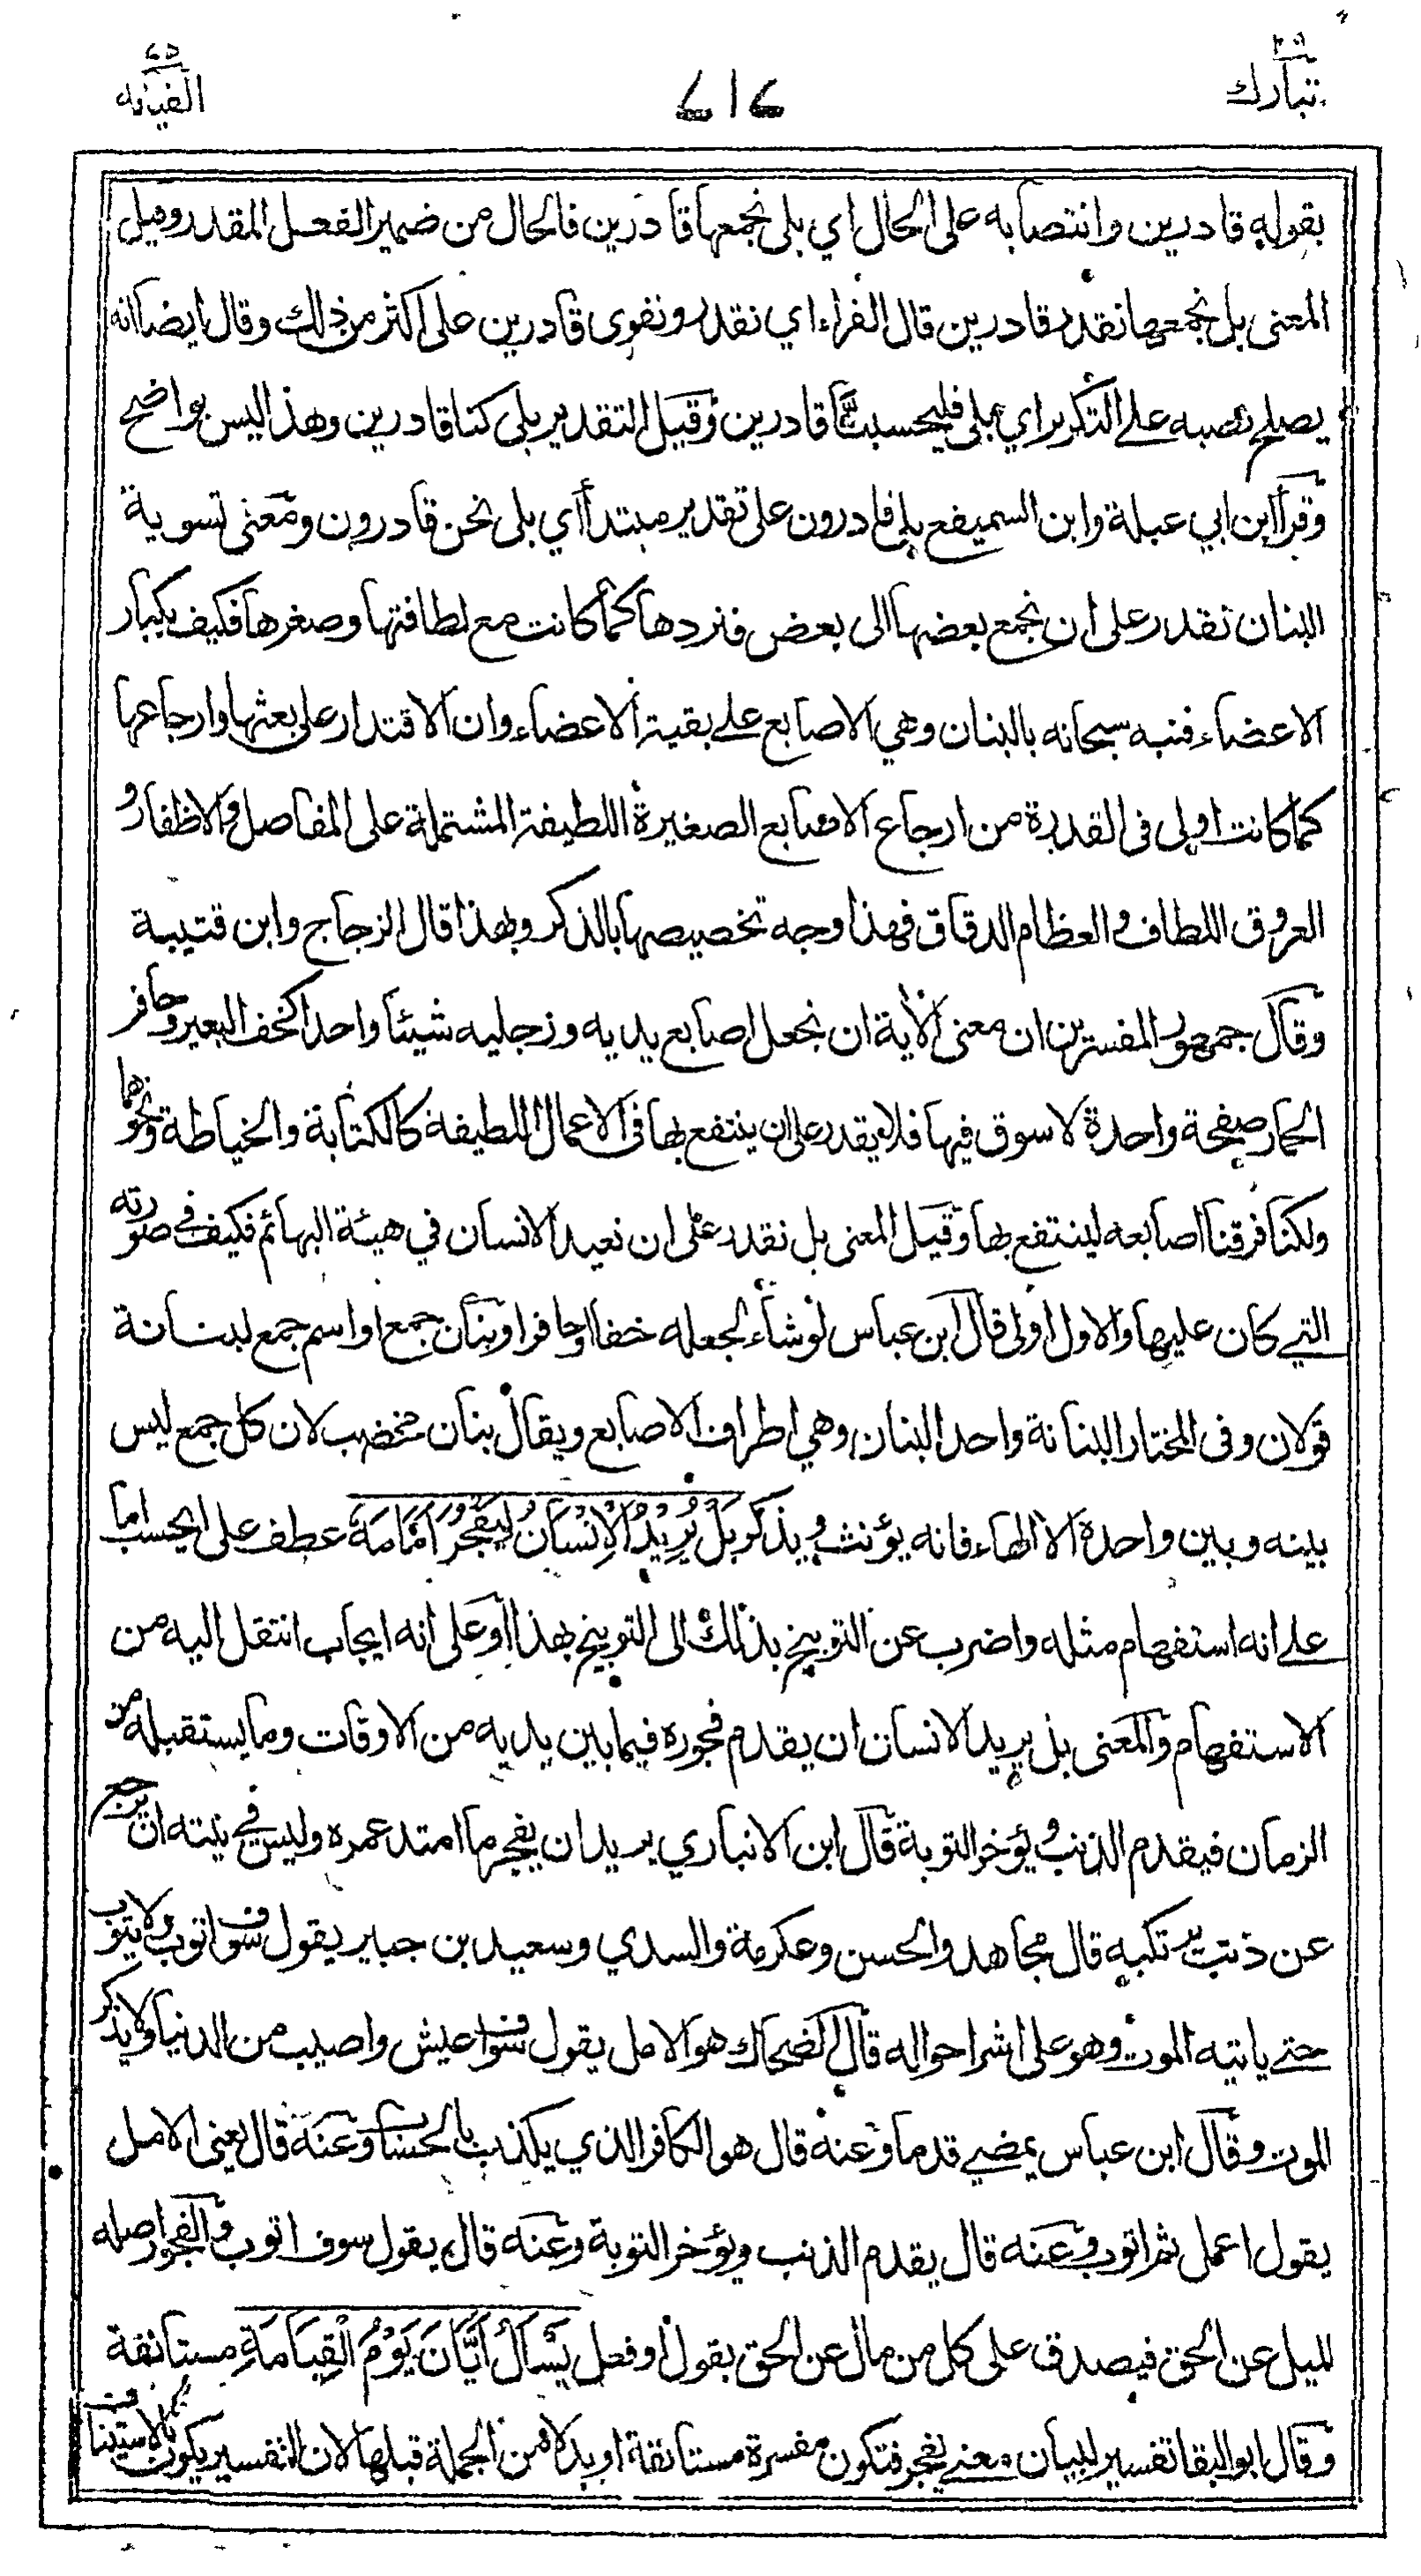 تبارك ٢٩
٢١٢
القيامة ٧٥
بقوله قادرين وانتصابه على الحال اي بلى نجمعها قادرين فالحال من ضمير الفعل المقدر وقيل
المعنى بل نجمعها نقدر قادرين قال الفراء اي نقدر ونقوى قادرين على اكثر من ذلك وقال ايضا انه
يصلح نصبه على التكرير اي بلى فليحسبنا قادرين وقيل التقدير بلى كنا قادرين وهذا ليس بواضح
وقرأ ابن ابي عبلة وابن السميفع بلى قادرون على تقدير مبتدأ أي بلى نحن قادرون ومعنى تسوية
البنان نقدر على ان نجمع بعضها الى بعض فنردها كما كانت مع لطافتها وصغرها فكيف بكبار
الاعضاء فنبه سبحانه بالبنان وهي الاصابع على بقية الاعضاء وان الاقتدار على بعثها وارجاعها
كما كانت اولى في القدرة من ارجاع الاصابع الصغيرة اللطيفة المشتملة على المفاصل والاظفار و
العروق اللطاف والعظام الدقاق فهذا وجه تخصيصها بالذكر وبهذا قال الزجاج وابن قتيبة
وقال جمهور المفسرين ان معنى الأية ان نجعل اصابع يديه ورجليه شيئا واحدا كخف البعير وحافر
الحمار صفحة واحدة لا سوق فيها فلا يقدر على ان ينتفع بها في الاعمال اللطيفة كالكتابة والخياطة ونحوهما
ولكنا فرقنا اصابعه لينتفع بها وقيل المعنى بل نقدر على ان نعيد الانسان في هيئة البهائم فكيف في صورته
التي كان عليها والاول اولى قال ابن عباس لو شاء لجعله خفا او حافرا وبنان جمع او اسم جمع لبنانة
قولان وفي المختار البنانة واحد البنان وهي اطراف الاصابع ويقال بنان مخضب لان كل جمع ليس
بينه وبين واحدة الا الهاء فانه يؤنث ويذكر بَلْ يُرِيْدُ الْاِنْسَانُ لِيَفْجُرَ اَمَامَهُ عطف على ايحسب اما
على انه استفهام مثله واضرب عن التوبيخ بذلك الى التوبيخ بهذا او على انه ايجاب انتقل اليه من
الاستفهام والمعنى بل يريد الانسان ان يقدم فجوره فيما بين يديه من الاوقات وما يستقبله من
الزمان فيقدم الذنب ويؤخر التوبة قال ابن الانباري يريد ان يفجر ما امتد عمره وليس في نيته ان يرجع
عن ذنب يرتكبه قال مجاهد والحسن وعكرمة والسدي وسعيد بن جبير يقول سوف اتوب ولا يتوب
حتى ياتيه الموت وهو على اشر احواله قال الضحاك هو الامل يقول سوف اعيش واصيب من الدنيا ولا يذكر
الموت وقال ابن عباس يمضي قدما وعنه قال هو الكافر الذي يكذب بالحساب وعنه قال يعني الامل
يقول اعمل ثم اتوب وعنه قال يقدم الذنب ويؤخر التوبة وعنه قال يقول سوف اتوب والفجور اصله
الميل عن الحق فيصدق على كل من مال عن الحق بقول او فعل يَسْاَلُ اَيَّانَ يَوْمُ الْقِيَامَةِ مستانفة
وقال ابو البقا تفسير للبيان معنى يفجر فتكون مفسرة مستانفة او بدلا من الجملة قبلها لان التفسير يكون بالاستيناف